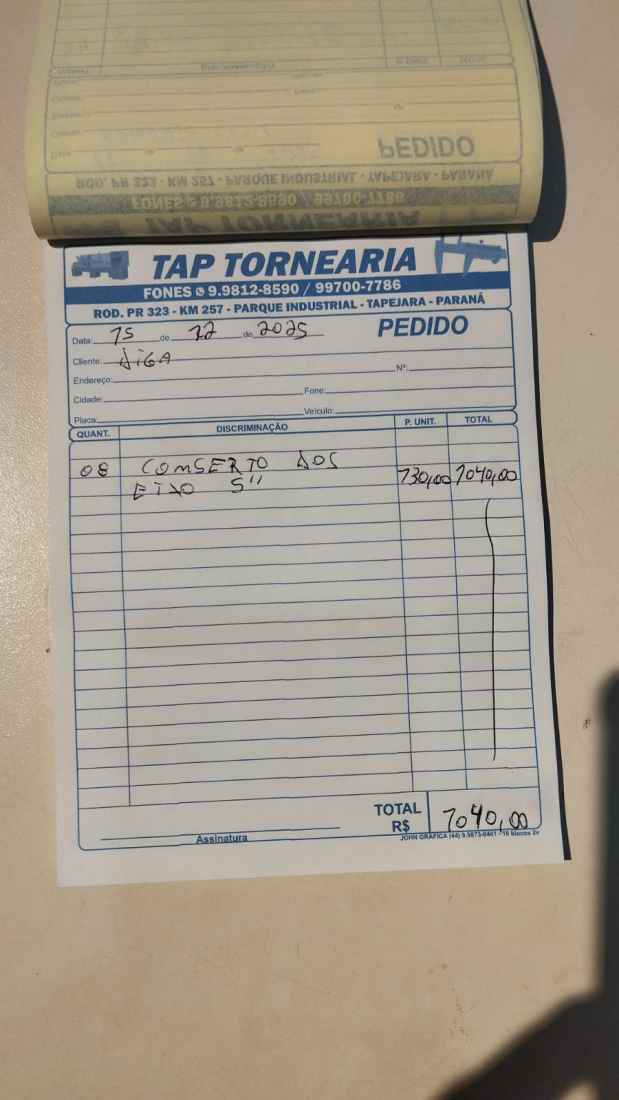 PEDIDO
ROD. PR 323 - KM 257 - PARQUE INDUSTRIAL - TAPEJARA - PARANÁ
FONES 9.9812-8590 / 99700-7786
TAP TORNEARIA
TAP TORNEARIA
FONES 9.9812-8590 / 99700-7786
ROD. PR 323 - KM 257 - PARQUE INDUSTRIAL - TAPEJARA - PARANÁ
Data: 15 de 12 de 2025 PEDIDO
Cliente:
Endereço: Nº:
Cidade: Fone:
Placa: Veículo:
QUANT. DISCRIMINAÇÃO P. UNIT. TOTAL
08 CONSERTO DOS
5" 130,00 1040,00
TOTAL
R$ 1040,00
Assinatura
JOHN GRÁFICA (44)